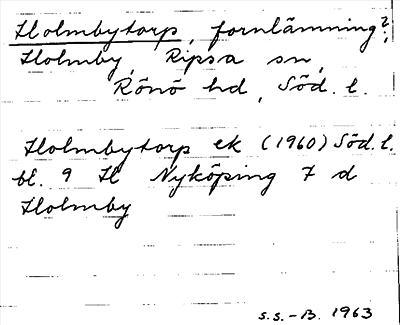 Holmbytorp, fornlämning?,
Holmby, Ripsa sn,
Rönö hd, Söd. l.
Holmbytorp ek (1960) Söd. l.
bl. 9 H Nyköping 7 d
Holmby
s.s.-B. 1963